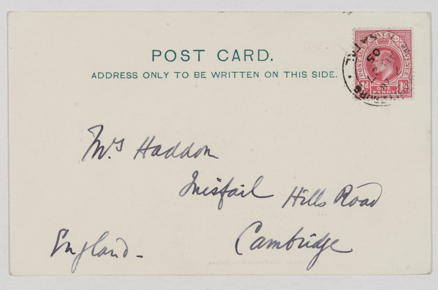 POST CARD.
ADDRESS ONLY TO BE WRITTEN ON THIS SIDE.
Mrs Haddon
Inisfail Hills Road
Cambridge
England.